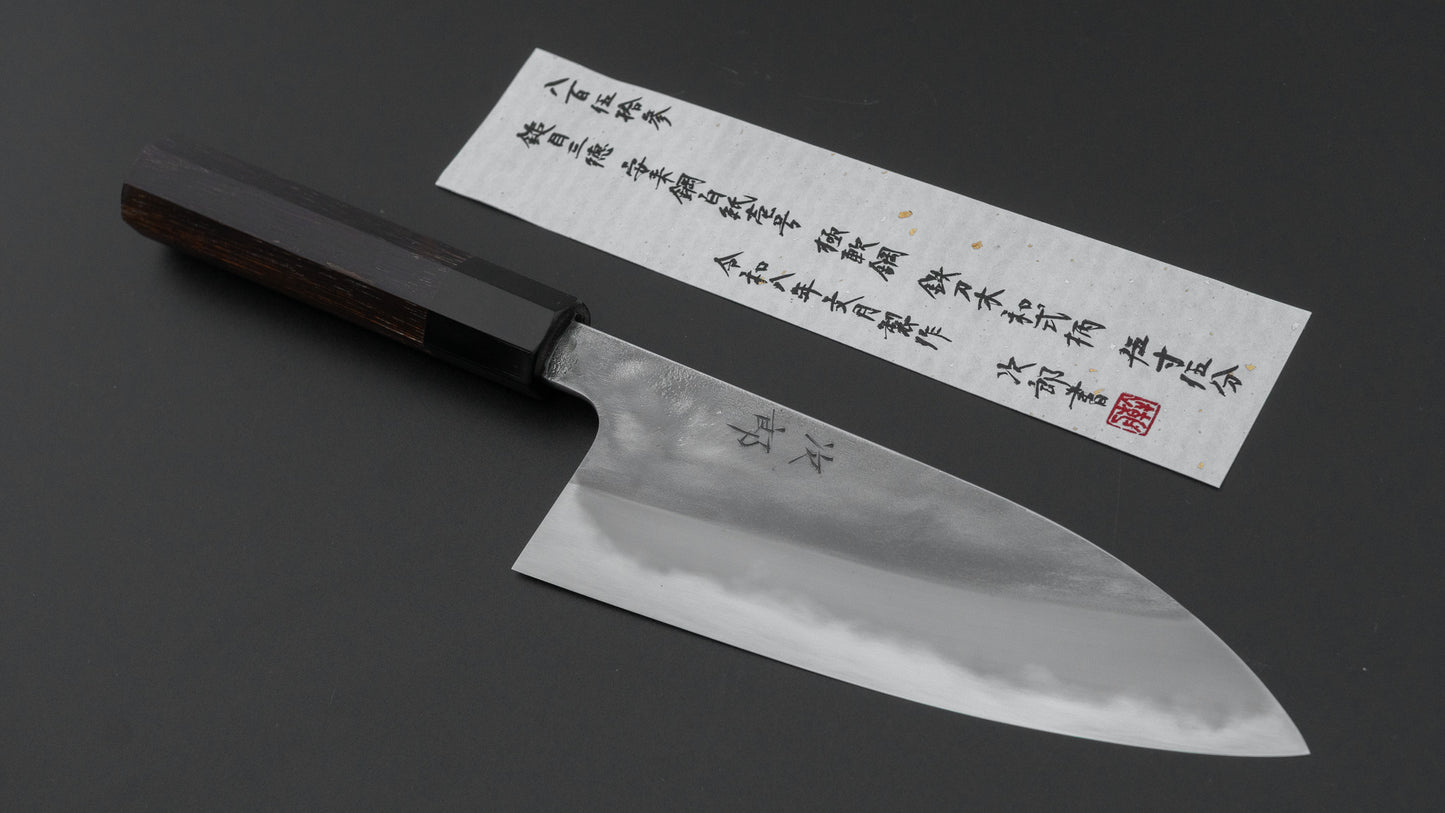 八百伍拾参
鎚目三徳 安来鋼白紙壱号 極軟鋼 鉄刀木和式柄 伍寸伍分
令和八年文月製作 次郎書
次郎